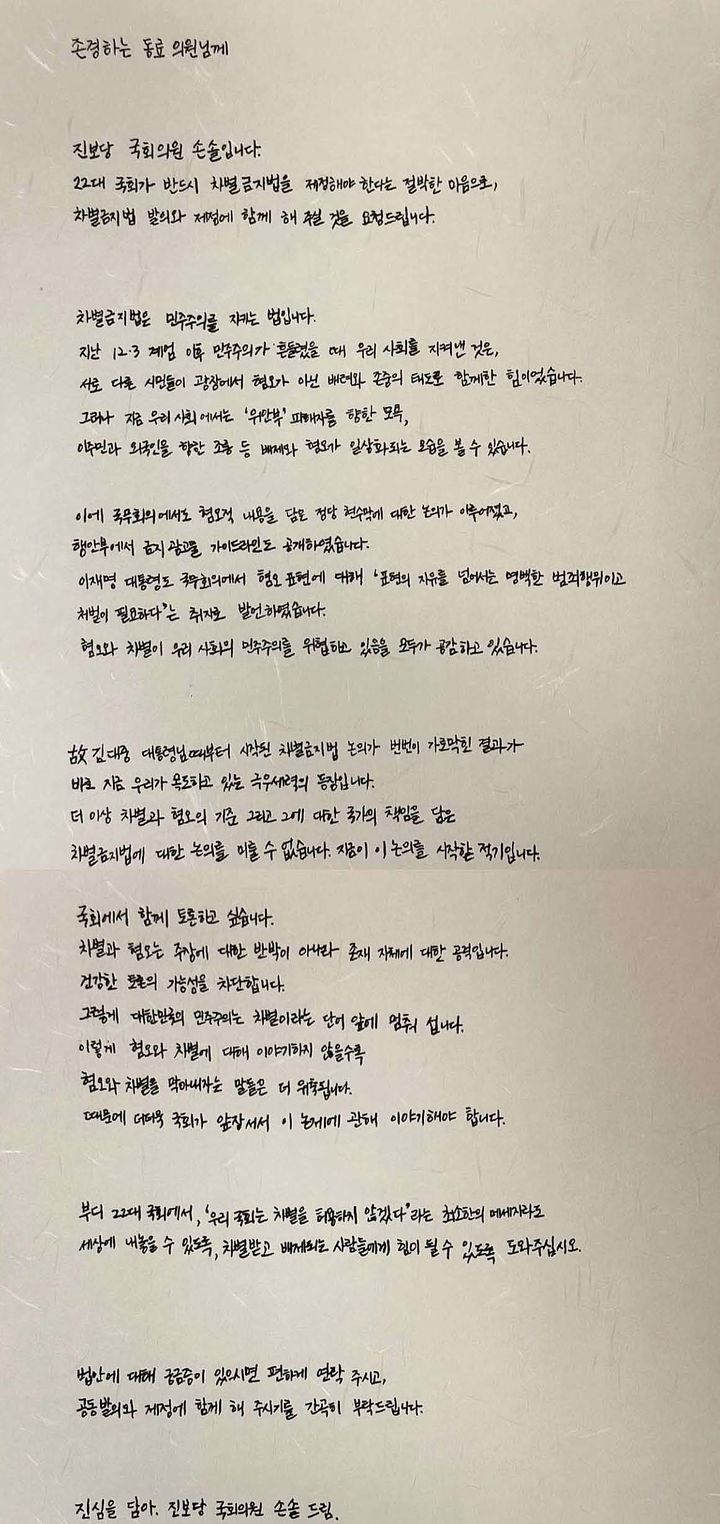 존경하는 동료 의원님께
진보당 국회의원 손솔입니다.
22대 국회가 반드시 차별금지법을 제정해야 한다는 절박한 마음으로,
차별금지법 발의와 제정에 함께 해 주실 것을 요청드립니다.
차별금지법은 민주주의를 지키는 법입니다.
지난 12·3 계엄 이후 민주주의가 흔들렸을 때 우리 사회를 지켜낸 것은,
서로 다른 시민들이 광장에서 혐오가 아닌 배려와 존중의 태도로 함께한 힘이었습니다.
그러나 지금 우리 사회에서는 '위안부' 피해자를 향한 모욕,
이주민과 외국인을 향한 조롱 등 배제와 혐오가 일상화되는 모습을 볼 수 있습니다.
이에 국무회의에서도 혐오적 내용을 담은 정당 현수막에 대한 논의가 이루어졌고,
행안부에서 금지광고물 가이드라인도 공개하였습니다.
이재명 대통령도 국무회의에서 혐오 표현에 대해 '표현의 자유를 넘어서는 명백한 범죄행위이고
처벌이 필요하다'는 취지로 발언하였습니다.
혐오와 차별이 우리 사회의 민주주의를 위협하고 있음을 모두가 공감하고 있습니다.
故 김대중 대통령님때부터 시작된 차별금지법 논의가 번번이 가로막힌 결과가
바로 지금 우리가 목도하고 있는 극우세력의 등장입니다.
더 이상 차별과 혐오의 기준 그리고 그에 대한 국가의 책임을 담은
차별금지법에 대한 논의를 미룰 수 없습니다. 지금이 이 논의를 시작할 적기입니다.
국회에서 함께 토론하고 싶습니다.
차별과 혐오는 주장에 대한 반박이 아니라 존재 자체에 대한 공격입니다.
건강한 토론의 가능성을 차단합니다.
그렇게 대한민국의 민주주의는 차별이라는 단어 앞에 멈춰 섭니다.
이렇게 혐오와 차별에 대해 이야기하지 않을수록
혐오와 차별을 막아내자는 말들은 더 위축됩니다.
때문에 더더욱 국회가 앞장서서 이 논제에 관해 이야기해야 합니다.
부디 22대 국회에서, '우리 국회는 차별을 허용하지 않겠다'라는 최소한의 메세지라도
세상에 내놓을 수 있도록, 차별받고 배제되는 사람들에게 힘이 될 수 있도록 도와주십시오.
법안에 대해 궁금증이 있으시면 편하게 연락 주시고,
공동발의와 제정에 함께 해 주시기를 간곡히 부탁드립니다.
진심을 담아. 진보당 국회의원 손솔 드림.